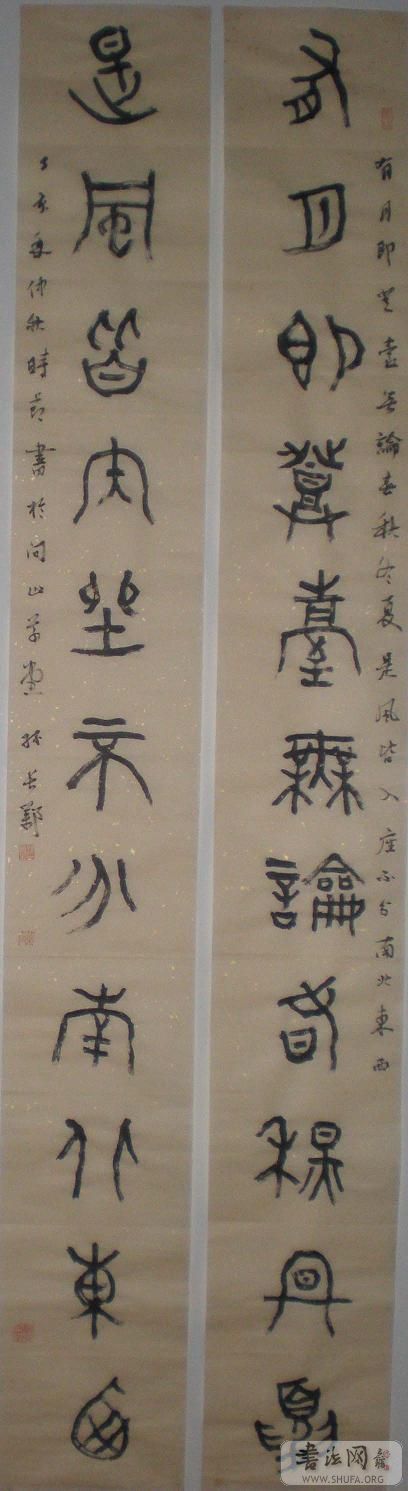 有月即登臺無論春秋冬夏是風皆入座不分南北東西
有月即登臺無論春秋冬夏
是風皆入座不分南北東西
丁亥仲秋時節書於問山草堂
書法网
WWW.SHUFA.ORG